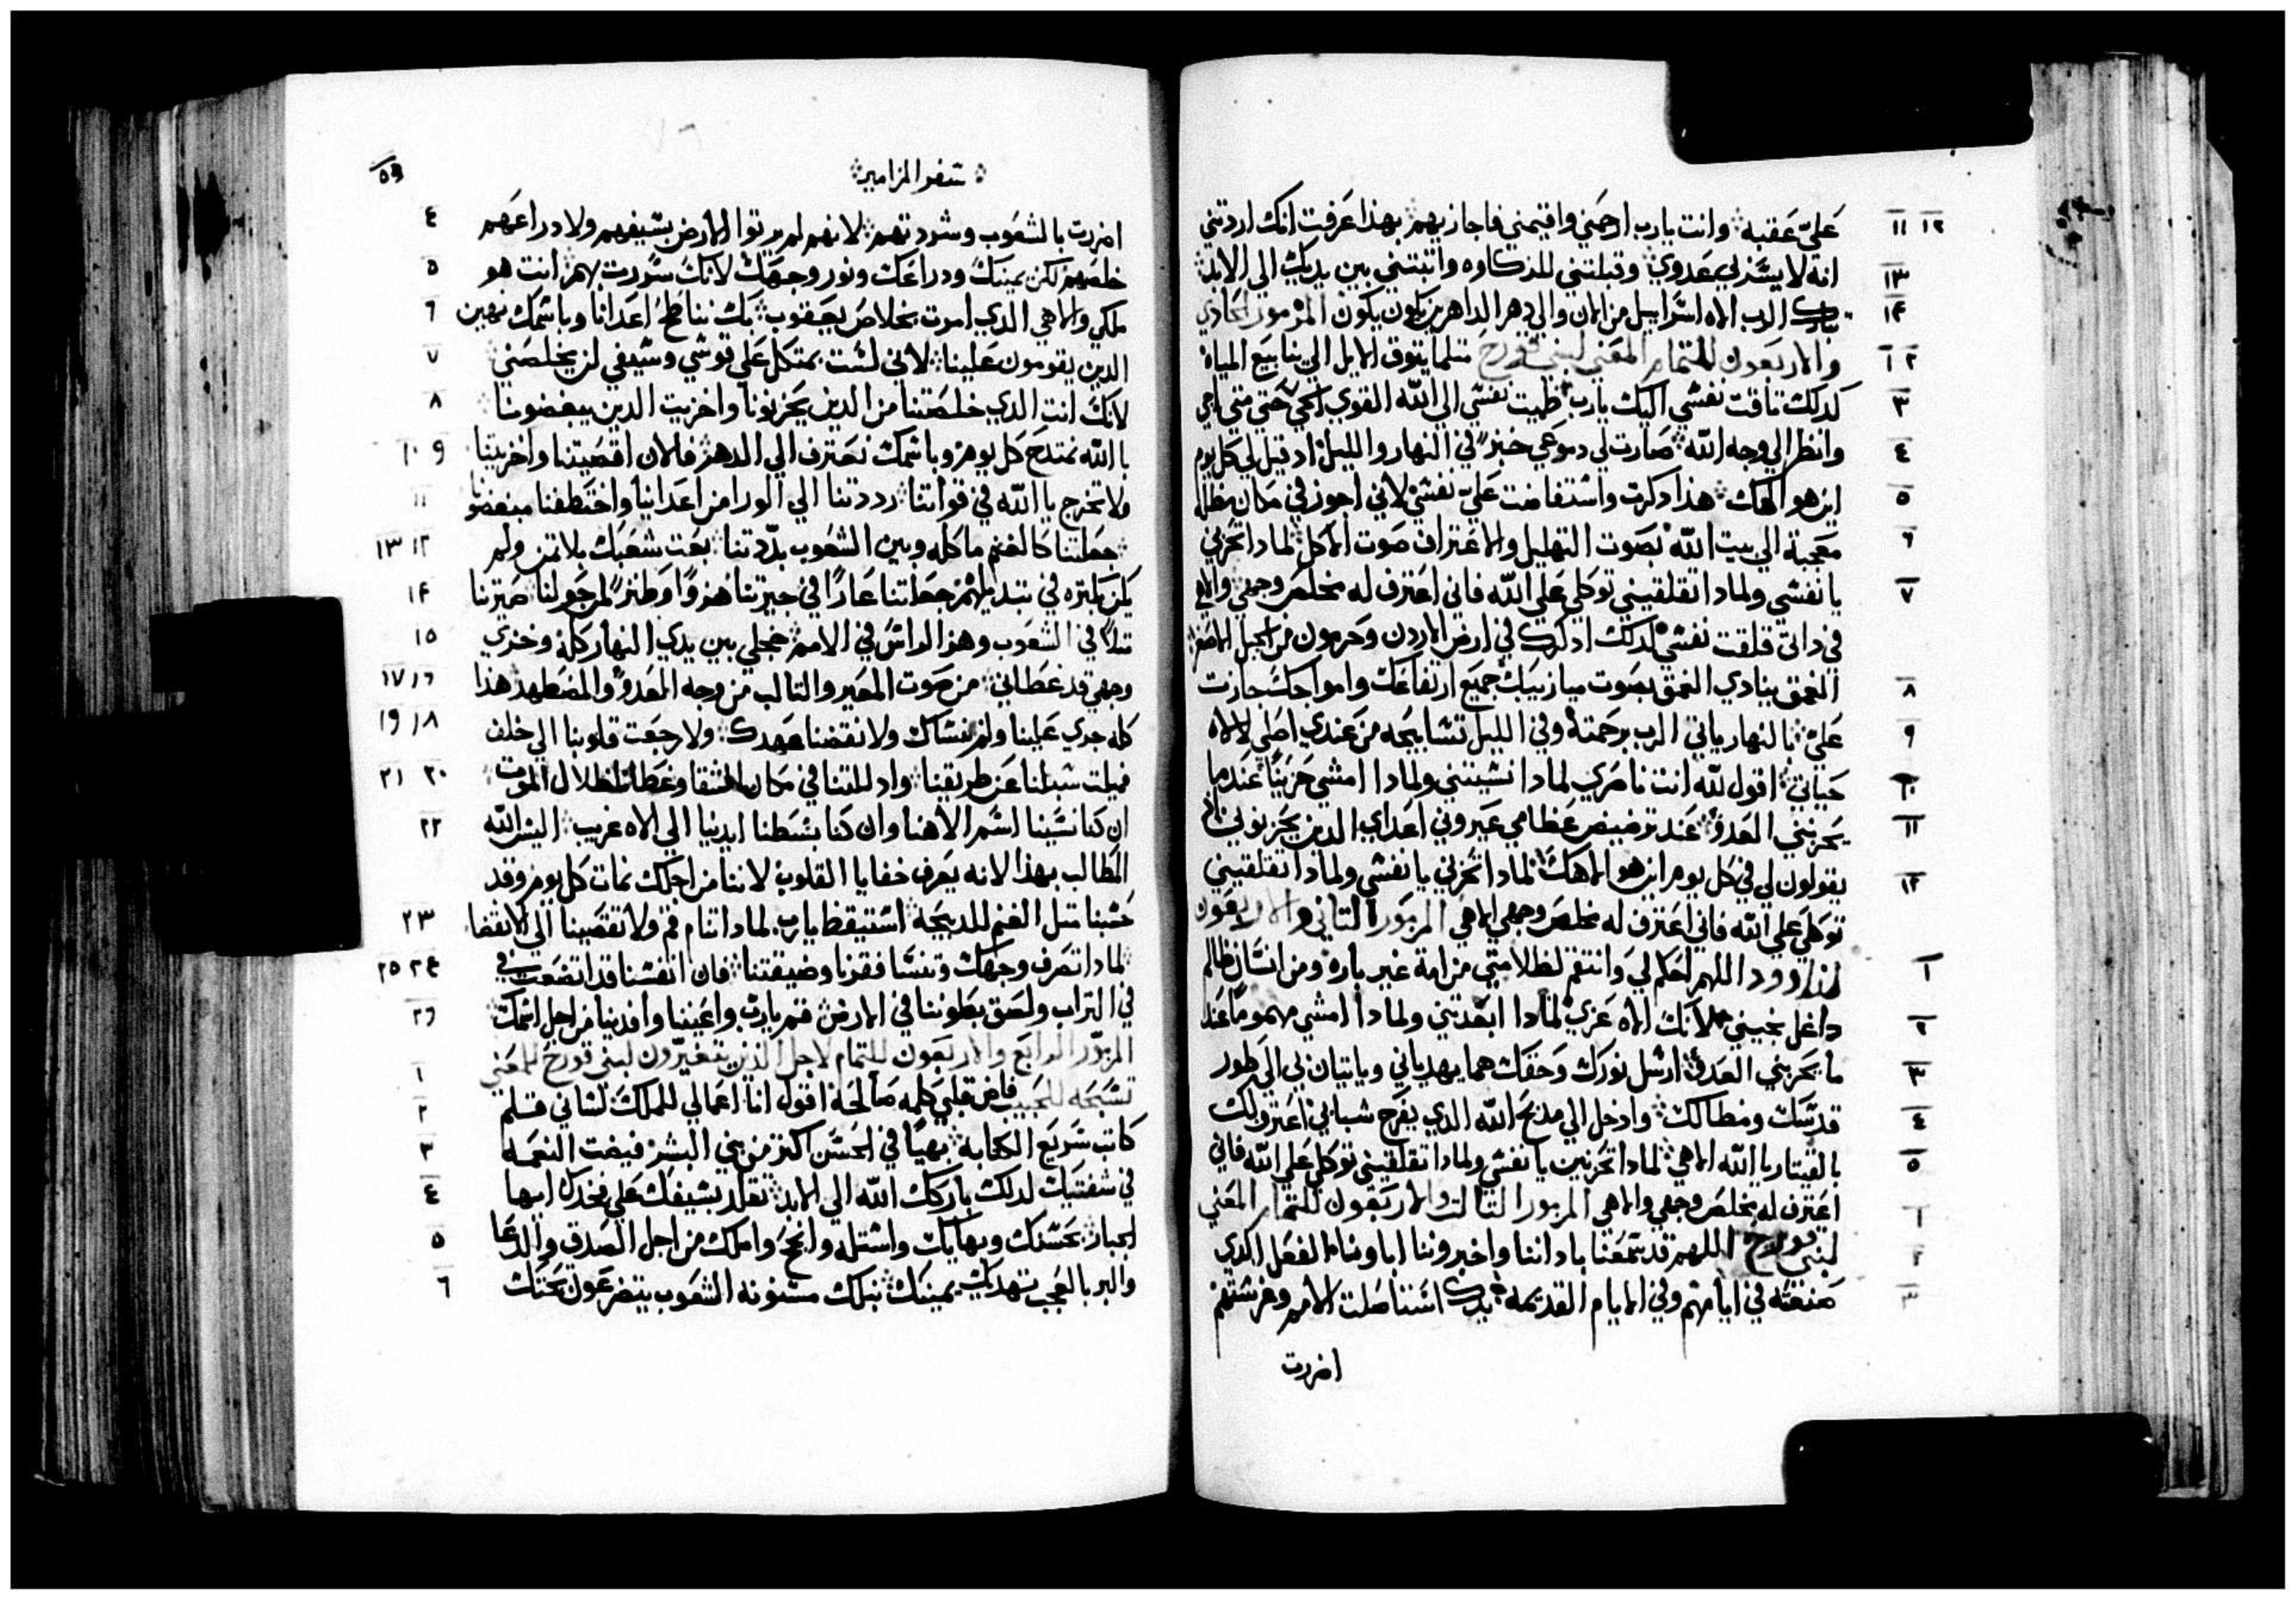 عليّ عقبه وانت يارب ارحمني واقيمني فاجازيهم بهذا عرفت انك اردتني
انه لا يشتر لي عدوي وقبلتني للدكاوه واتبتني بين يديك الي الابد
تبارك الرب الاه اسراييل من الان والي دهر الداهرين يكون يكون المزمور الحادي
والاربعون للتمام المعني لبني قورح متلما يتوق الايل الي ينابيع المياه
كدلك تاقت نفسي اليك يارب ظميت نفسي الي الله القوي الحي حتي متي اجي
وانظر الي وجه الله صارت لي دموعي خبزً في النهار والليل اد قيل لي كل يوم
اين هو الهك هذا دكرت واستفاضت عليّ نفسي لاني اجوز في مكان مظال
معجبة الي بيت الله بصوت التهليل والاعتراف صوت الاكل لمادا تحزني
يا نفسي ولمادا تقلقيني توكلي علي الله فاني اعترف له مخلص وجهي والاهي
في داتي قلقت نفسي لدلك ادكرك في ارض الاردن وحرمون من الجبل الاصغر
الغمق ينادي الغمق بصوت ميازيبك جميع ارتفاعك وامواجك جازت
عليّ بالنهار ياتي الرب برحمته وفي الليل تسابيحه من عندي اصلي لالاه
حياتي اقول لله انت ناصري لمادا نسيتني ولمادا امشي حزينًا عندما
يحزنني العدوّ عند ترضيض عظامي عيروني اعداي الدين يحزنوني
يقولون لي في كل يوم اين هو الاهك لمادا تحزني يا نفسي ولمادا تقلقيني
توكلي علي الله فاني اعترف له مخلص وجهي الاهي المزمور التاني والاربعون
لداوود اللهم احكم لي وانتقم لظلامتي من امة غير باره ومن انسان ظالم
داغل نجيني لانك الاه عزي لمادا ابعدتني ولمادا امشي مهمومًا عند
ما يحزنني العدوّ ارسل نورك وحقك هما يهدياني وياتيان بي الي طور
قدسك ومظالك وادخل الي مدبح الله الدي يفرح شبابي اعترف لك
بالقيتار يا الله الاهي لمادا تحزنين يا نفسي ولمادا تقلقيني توكلي علي الله فاني
اعترف له مخلص وجهي والاهي المزمور التالت والاربعون للتمام المعني
لبني قورح اللهم قد سمعنا باداننا واخبروننا اباونا الفعل الدي
صنعته في ايامهم وفي الايام القديمه يدك استاصلت الامم وغرستهم
اضررت
سفر المزامير
٥٩
اضررت بالشعوب وشردتهم لانهم لم يرتوا الارض بسيفهم ولا دراعهم
خلصهم لكن يمينك ودراعك ونور وجهك لانك سررت بهم انت هو
ملكي والاهي الدي امرت بخلاص يعقوب بك نناطح اعدانا وباسمك نهين
الدين يقومون علينا لاني لست بمتكل علي قوسي وسيفي لن يخلصني
لانك انت الدي خلصتنا من الدين يحزنونا واخزيت الدين يبغضوننا
بالله نمتدح كل يوم وباسمك نعترف الي الدهر فلان اقصيتنا واخزيتنا
ولا تخرج يا الله في قواتنا رددتنا الي الورا من اعداينا واختطفنا مبغضونا
جعلتنا كالغنم ماكله وبين الشعوب بدّدتنا بعت شعبك بلا تمن ولم
يكن كتره في تبديلهم جعلتنا عارًا في جيرتنا هزوًا وطنزً لمن حولنا صيرتنا
متلاً في الشعوب وهز الراس في الامم خجلي بين يدي النهار كله وخزي
وجهي قد غطاني من صوت المعير والتالب من وجه العدوّ والمضطهد هذا
كله جري علينا ولم ننساك ولا نقضنا عهدك ولا رجعت قلوبنا الي خلف
فميلت سبلنا عن طريقنا وادللتنا في مكان الشقا وغطانا ظلال الموت
ان كنا نسينا اسم الاهنا وان كنا بسطنا ايدينا الي الاه غريب اليس الله
المطالب بهذا لانه يعرف خفايا القلوب لاننا من اجلك نمات كل يوم وقد
حسبنا متل الغنم للدبيحة استيقظ يارب لمادا تنام قم ولا تقصينا الي الانقضا
لمادا تصرف وجهك وتنسا فقرنا وضيقتنا فان انفسنا قد اتضعت في
في التراب ولصق بطوننا في الارض قم يارب واعيننا وافدينا من اجل اسمك
المزمور الرابع والاربعون للتمام لاجل الذين يتغيّرون لبني قورح للمعني
تسبحه للحبيب فاض قلبي كلمه صالحة اقول انا اعمالي للملك لساني قلم
كاتب سريع الكتابه بهيًا في الحسن اكتر من بني البشر فيضت النعمه
في شفتيك لدلك باركك الله الي الابد تقلد بسيفك علي فخدك ايها
الجبار بحسنك وبهايك واستله وانجح واملك من اجل الصدق والدعا
والبر بالعجب تهديك يمينك نبلك مسنونه الشعوب يتضرعون تحتك